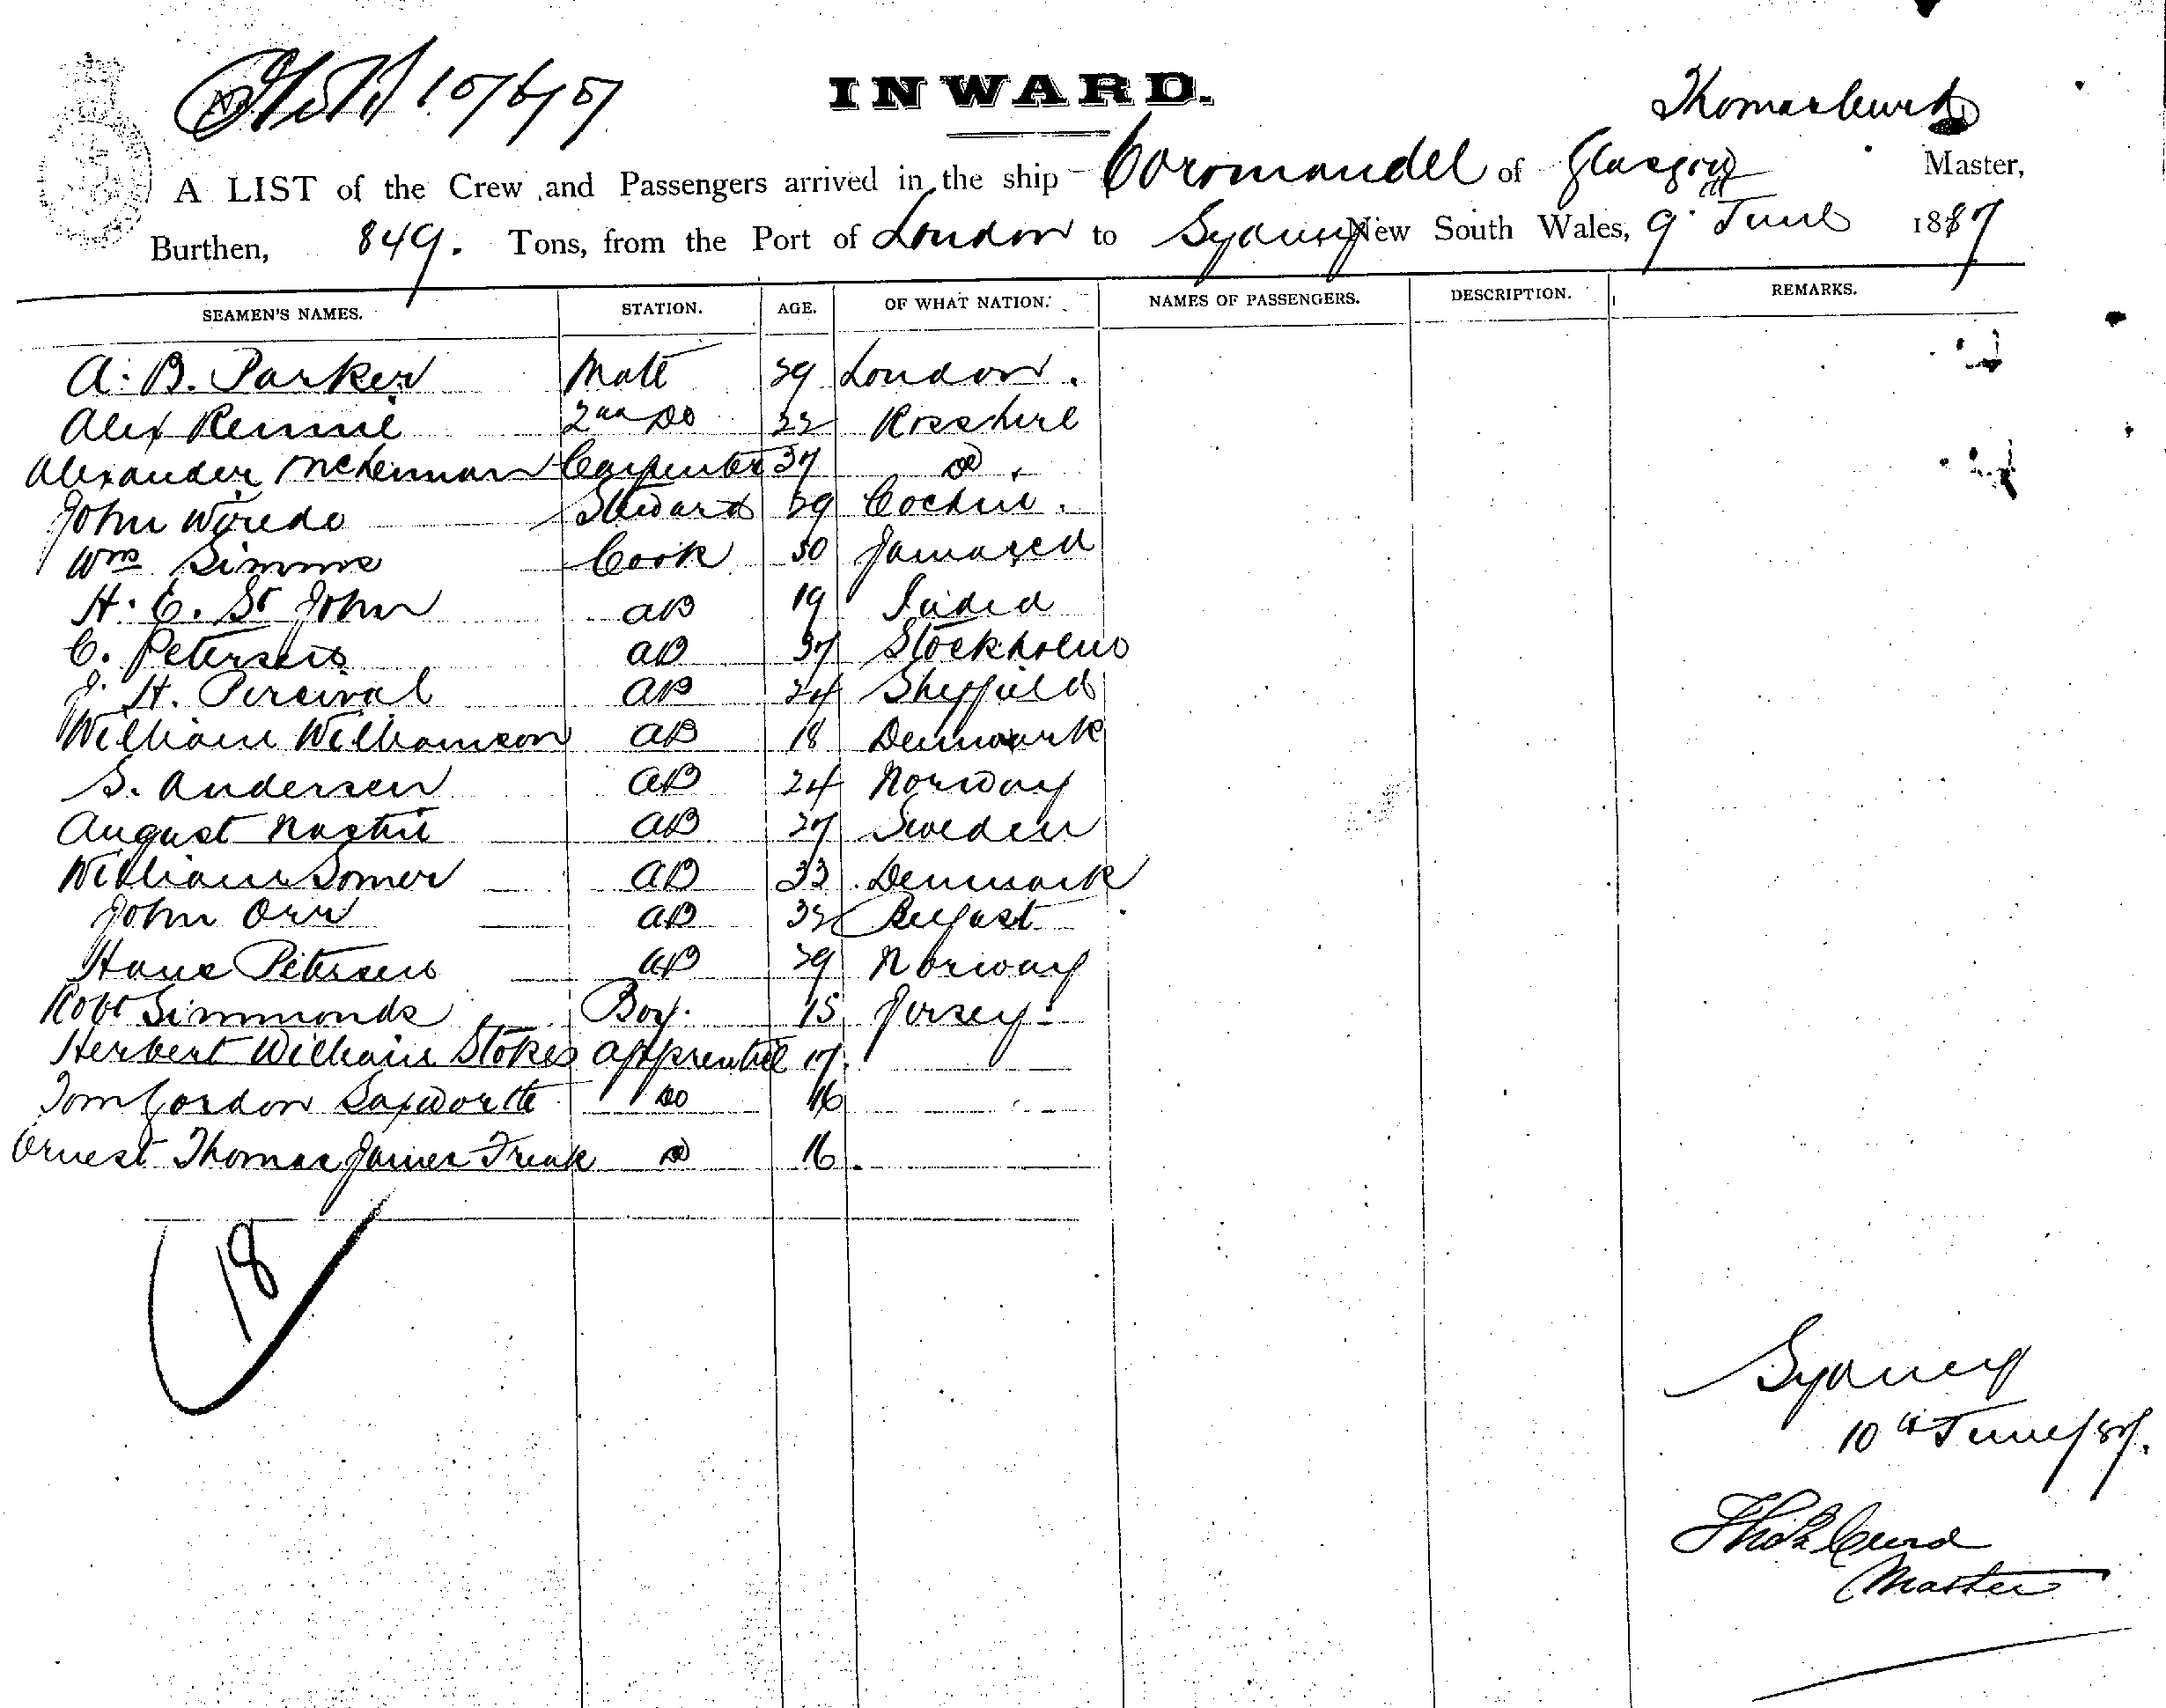 10/6/87
INWARD.
Thomas Curd
A LIST of the Crew and Passengers arrived in the ship Coromandel of Glasgow Master,
Burthen, 849. Tons, from the Port of London to Sydney New South Wales, 9th June 1887
SEAMEN'S NAMES. STATION. AGE. OF WHAT NATION. NAMES OF PASSENGERS. DESCRIPTION. REMARKS.
A. B. Parker Mate 29 London.
Alex Rennie 2nd Do 22 Rosshire
Alexander McLennan Carpenter 37 Do.
John Steward 29 Cochin.
Wm Simms Cook 30 Jamaica
H. C. St John AB 19 India
C. Petersen AB 37 Stockholm
J. H. Percival AB 24 Sheffield
William Williamson AB 18 Denmark
S. Andersen AB 24 Norway
August AB 27 Sweden
William Somer AB 33 Denmark
John Orr AB 32 Belfast
Hans Petersen AB 29 Norway
Robt Simmonds Boy. 15 Jersey
Herbert William Stokes Apprentice 17.
Tom Gordon Do 16
Ernest Thomas James Freak Do 16.
18
Sydney
10th June/87.
Thos Curd
Master